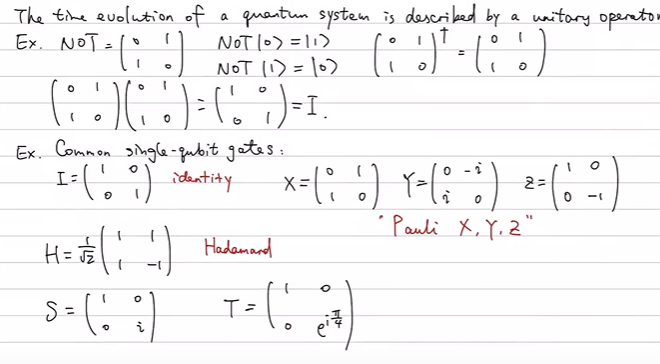 The time evolution of a quantum system is described by a unitary operator
Ex. NOT = (0 1; 1 0) NOT |0> = |1> NOT |1> = |0> (0 1; 1 0)† = (0 1; 1 0)
(0 1; 1 0) (0 1; 1 0) = (1 0; 0 1) = I.
Ex. Common single-qubit gates:
I = (1 0; 0 1) identity X = (0 1; 1 0) Y = (0 -i; i 0) Z = (1 0; 0 -1)
"Pauli X, Y, Z"
H = 1/√2 (1 1; 1 -1) Hadamard
S = (1 0; 0 i) T = (1 0; 0 e^{iπ/4})